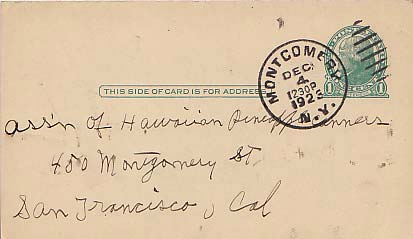 THIS SIDE OF CARD IS FOR ADDRESS
MONTGOMERY
DEC
4
1230P
192
N.Y.
1 1
Ass'n of Hawaiian Pineapple Canners
450 Montgomery St
San Francisco, Cal